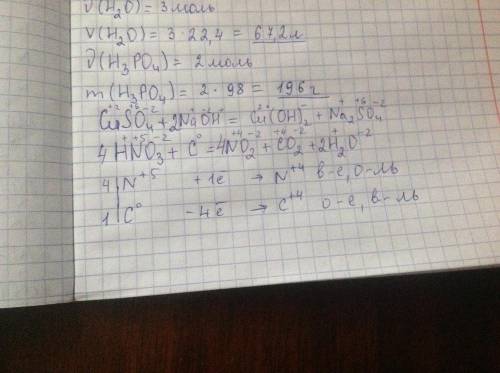 ν(H₂O) = 3 моль
V(H₂O) = 3 · 22,4 = 67,2 л
ν(H₃PO₄) = 2 моль
m(H₃PO₄) = 2 · 98 = 196 г
Cu⁺²S⁺⁶O₄⁻² + 2Na⁺OH⁻ = Cu²⁺(OH)₂⁻ + Na₂⁺S⁺⁶O₄⁻²
4H⁺N⁺⁵O₃⁻² + C⁰ = 4N⁺⁴O₂⁻² + C⁺⁴O₂⁻² + 2H₂⁺O⁻²
4 | N⁺⁵ +1ē → N⁺⁴ в-е, о-ль
1 | C⁰ -4ē → C⁺⁴ о-е, в-ль